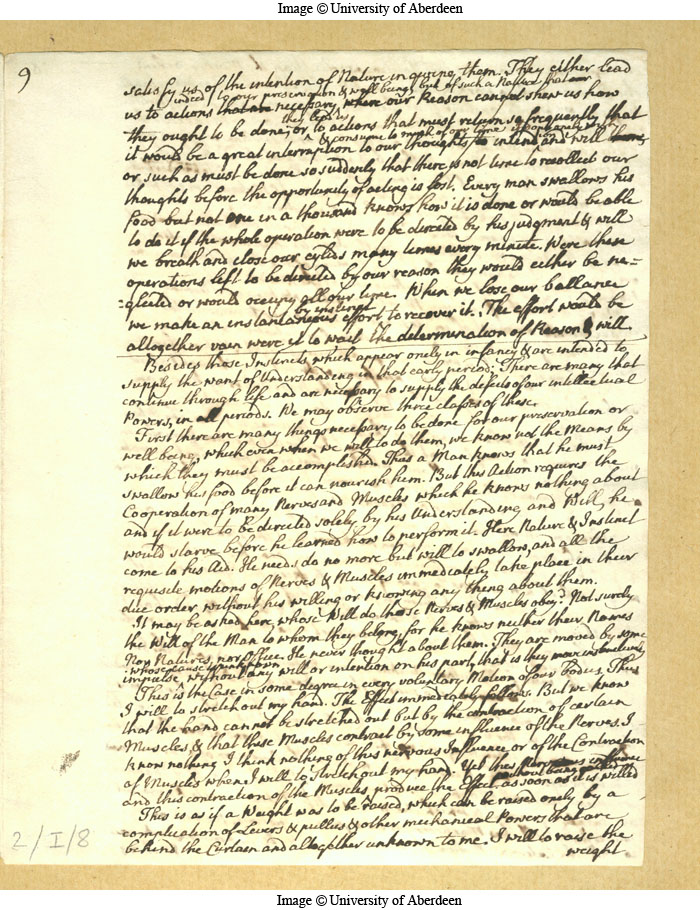 Image © University of Aberdeen
9
satisfy us, of the intention of Nature in giving them. They either lead
indeed to our preservation & well being, but of such a Nature that
us to actions that are necessary, where our Reason cannot shew us how
they lead us
they ought to be done, or to actions that must return so frequently that
& consume so much of our time
it would be a great interruption to our thoughts to intend, and will them,
or such as must be done so suddenly that there is not time to recollect our
thoughts before the opportunity of acting is lost. Every man swallows his
food but not one in a thousand knows how it is done or would be able
to do it if the whole operation were to be directed by his judgment & will
we breath and close our eylids many times every minute. Were these
operations left to be directed by our reason they would either be ne=
=glected or would occupy all our time. When we lose our ballance
by instinct
we make an instantaneous effort to recover it. The effort would be
altogether vain were it to wait the determination of Reason & will.
Besides those Instincts which appear onely in infancy & are intended to
supply the want of Understanding in that early period; There are many that
continue through life and are necessary to supply the defects of our intellectual
Powers, in all periods. We may observe three classes of these.
First there are many things necessary to be done for our preservation or
well being, which even when we will to do them, we know not the Means by
which they must be accomplished. Thus a Man knows that he must
swallow his food before it can nourish him. But this Action requires the
Cooperation of many Nerves and Muscles which he knows nothing about
and if it were to be directed solely by his Understanding and Will, he
would starve before he learned how to perform it. Here Nature & Instinct
come to his Aid. He needs do no more but will to swallow, and all the
requisite motions of Nerves & Muscles immediately take place in their
due order, without his willing or knowing any thing about them.
It may be asked here, whose Will do these Nerves & Muscles obey? Not surely
the Will of the Man to whom they belong, for he knows neither their Names
Nor Natures, nor Office. He never thought about them. They are moved by some
whose cause is unknown
impulse, without any will or intention on his part, that is they move instinctively
This is the Case in some degree in every voluntary Motion of our bodies. Thus
I will to stretch out my hand. The Effect immediately follows. But we know
that the hand cannot be stretched out but by the contraction of certain
Muscles & that these Muscles contract by some influence of the Nerves. I
know nothing I think nothing of this nervous Influence or of the Contraction
of Muscles when I will to stretch out my hand. Yet this Nervous influence
without being
and this contraction of the Muscles produce the Effect as soon as it is willed
This is as if a Weight was to be raised, which can be raised onely by a
complication of Levers & pullies & other mechanical Powers that are
behind the Curtain and altogether unknown to me. I will to raise the
weight
2/I/8
Image © University of Aberdeen